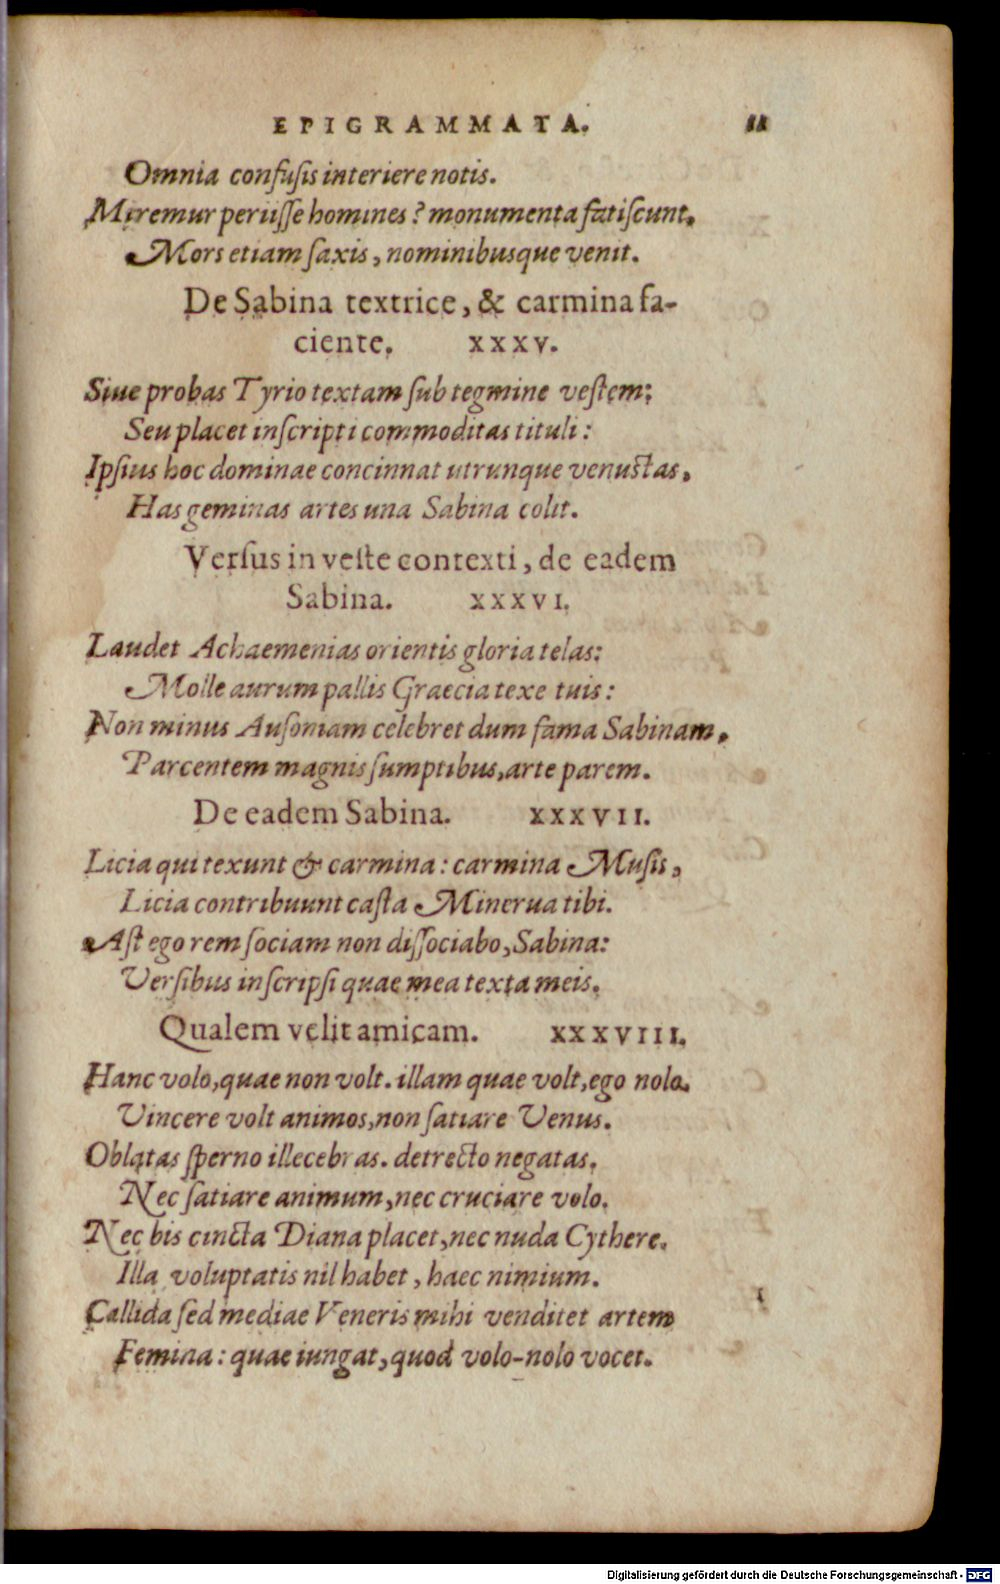 EPIGRAMMATA. 11
Omnia confusis interiere notis.
Miremur periisse homines? monumenta fatiscunt,
Mors etiam saxis, nominibusque venit.
De Sabina textrice, & carmina fa-
ciente. XXXV.
Siue probas Tyrio textam sub tegmine vestem:
Seu placet inscripti commoditas tituli:
Ipsius hoc dominae concinnat utrunque venustas,
Has geminas artes una Sabina colit.
Versus in veste contexti, de eadem
Sabina. XXXVI.
Laudet Achaemenias orientis gloria telas:
Molle aurum pallis Graecia texe tuis:
Non minus Ausoniam celebret dum fama Sabinam,
Parcentem magnis sumptibus, arte parem.
De eadem Sabina. XXXVII.
Licia qui texunt & carmina: carmina Musis,
Licia contribuunt casta Minerua tibi.
Ast ego rem sociam non dissociabo, Sabina:
Versibus inscripsi quae mea texta meis.
Qualem velit amicam. XXXVIII.
Hanc volo, quae non volt. illam quae volt, ego nolo.
Vincere volt animos, non satiare Venus.
Oblatas sperno illecebras. detrecto negatas.
Nec satiare animum, nec cruciare volo.
Nec bis cincta Diana placet, nec nuda Cythere.
Illa voluptatis nil habet, haec nimium.
Callida sed mediae Veneris mihi venditet artem
Femina: quae iungat, quod volo-nolo vocet.
Digitalisierung gefördert durch die Deutsche Forschungsgemeinschaft - DFG